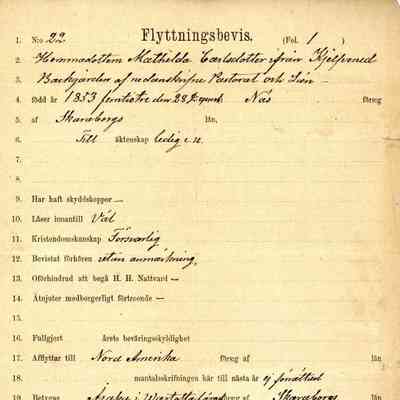 Flyttningsbevis.
1. N:o 22 (Fol. 1)
2. Hemmadottern Mathilda Carlsdotter ifrån Kjelfvened
3. Backgården af nedanskrifne Pastorat och Län
4. född år 1853 femtiotre den 28 Näs förs:g
5. af Skaraborgs län,
6. Till äktenskap ledig i n.
7.
8.
9. Har haft skyddskoppor —
10. Läser innantill Väl
11. Kristendomskunskap Försvarlig
12. Bevistat förhören utan anmärkning,
13. Oförhindrad att begå H. H. Nattvard —
14. Åtnjuter medborgerligt förtroende —
15.
16. Fullgjort årets beväringsskyldighet
17. Afflyttar till Nord Amerika förs:g af län
18. mantalsskrifningen här till nästa år ej förrättad
19. Betygas af Skaraborgs län